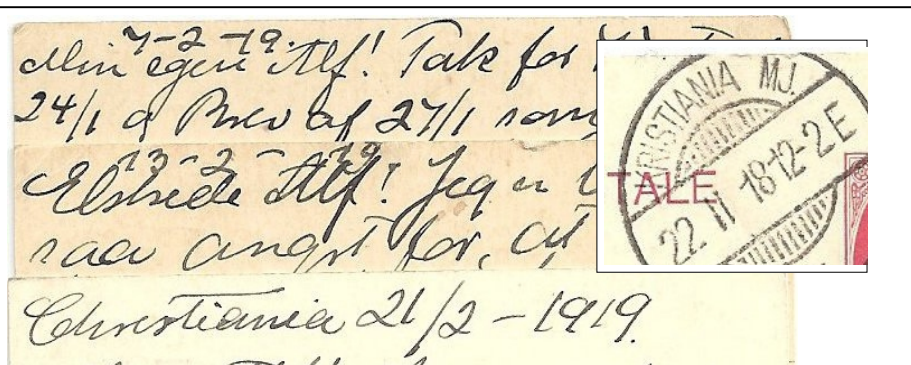 7-2-19.
Min egen Alf! Tak for
24/1 og Brev af 27/1 som
13-2-19
Elskede Alf! Jeg er
saa angst for, at
Christiania 21/2-1919.
KRISTIANIA MJ.
22. II 18·12-2 E
TALE